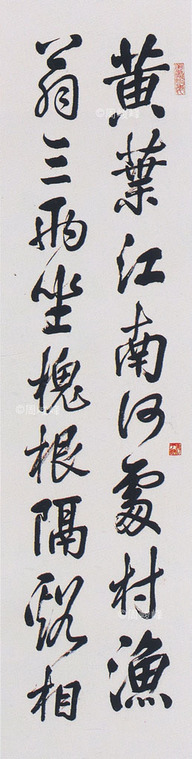 黄葉江南何處村漁
翁三兩坐槐根隔谿相